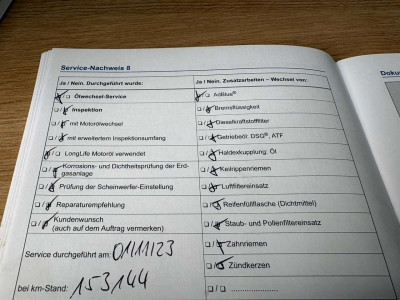 Service-Nachweis 8
Ja / Nein. Durchgeführt wurde:
Ölwechsel-Service
Inspektion
mit Motorölwechsel
mit erweitertem Inspektionsumfang
LongLife Motoröl verwendet
Korrosions- und Dichtheitsprüfung der Erd-
gasanlage
Prüfung der Scheinwerfer-Einstellung
Reparaturempfehlung
Kundenwunsch
(auch auf dem Auftrag vermerkt)
Service durchgeführt am: 01/11/23
bei km-Stand: 153144
Ja / Nein. Zusatzarbeiten – Wechsel von:
AdBlue®
Bremsflüssigkeit
Dieselkraftstofffilter
Getriebeöl: DSG®, ATF
Haldexkupplung: Öl
Keilrippenriemen
Luftfiltereinsatz
Reifenfüllflasche (Dichtmittel)
Staub- und Pollenfiltereinsatz
Zahnriemen
Zündkerzen
Doku